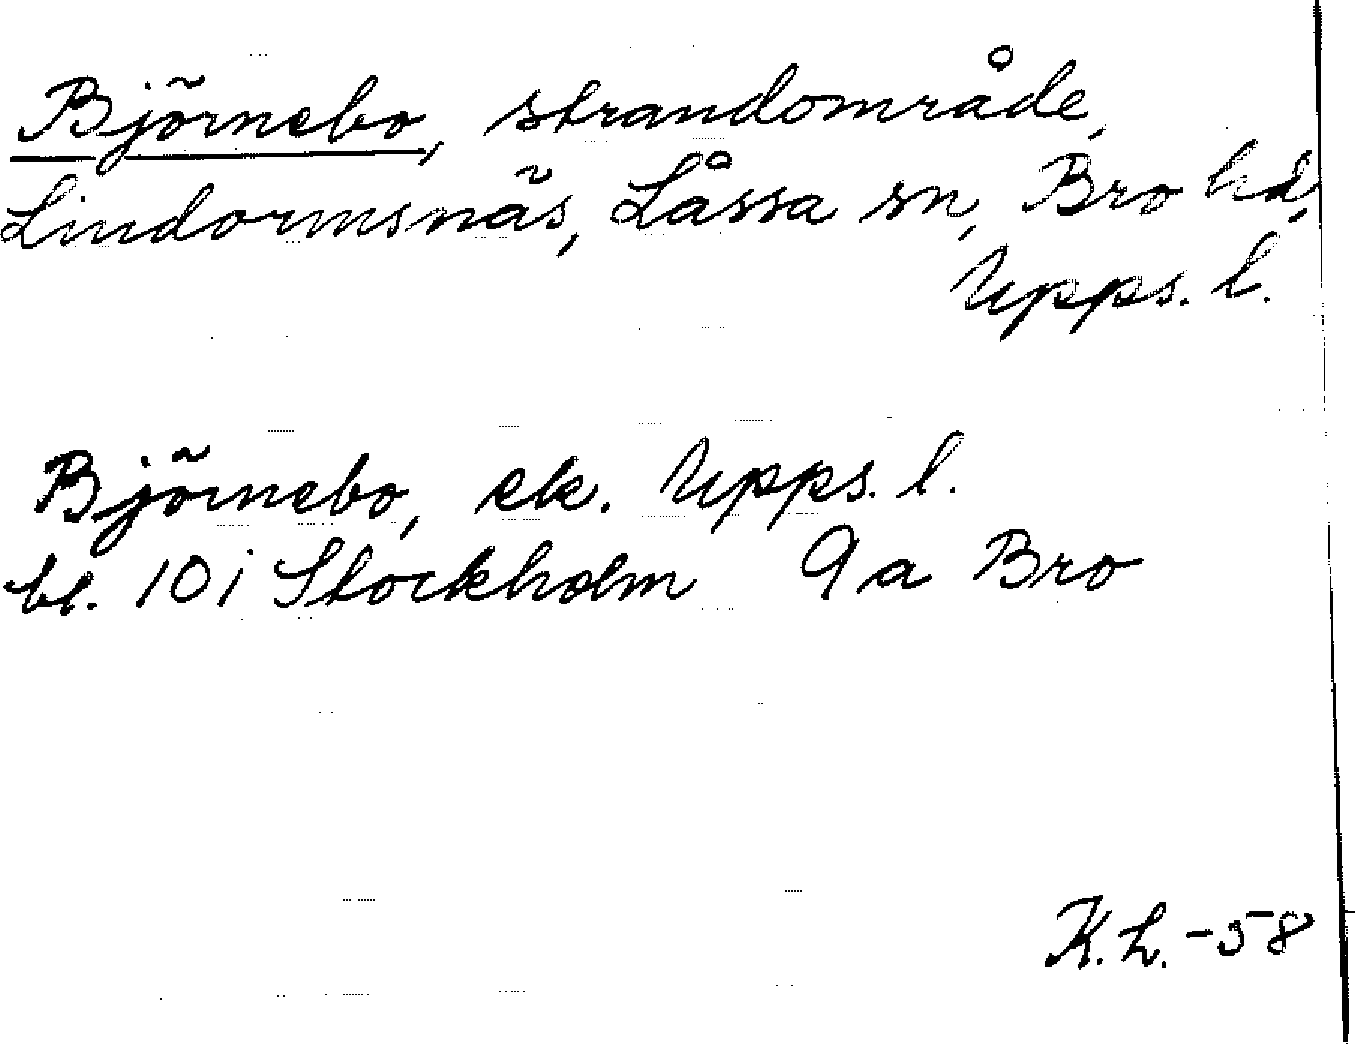 Björnebo, strandområde,
Lindormsnäs, Låssa sn, Bro hd,
Upps. l.
Björnebo, ek. Upps. l.
bl. 10 i Stockholm 9a Bro
K. L. -58